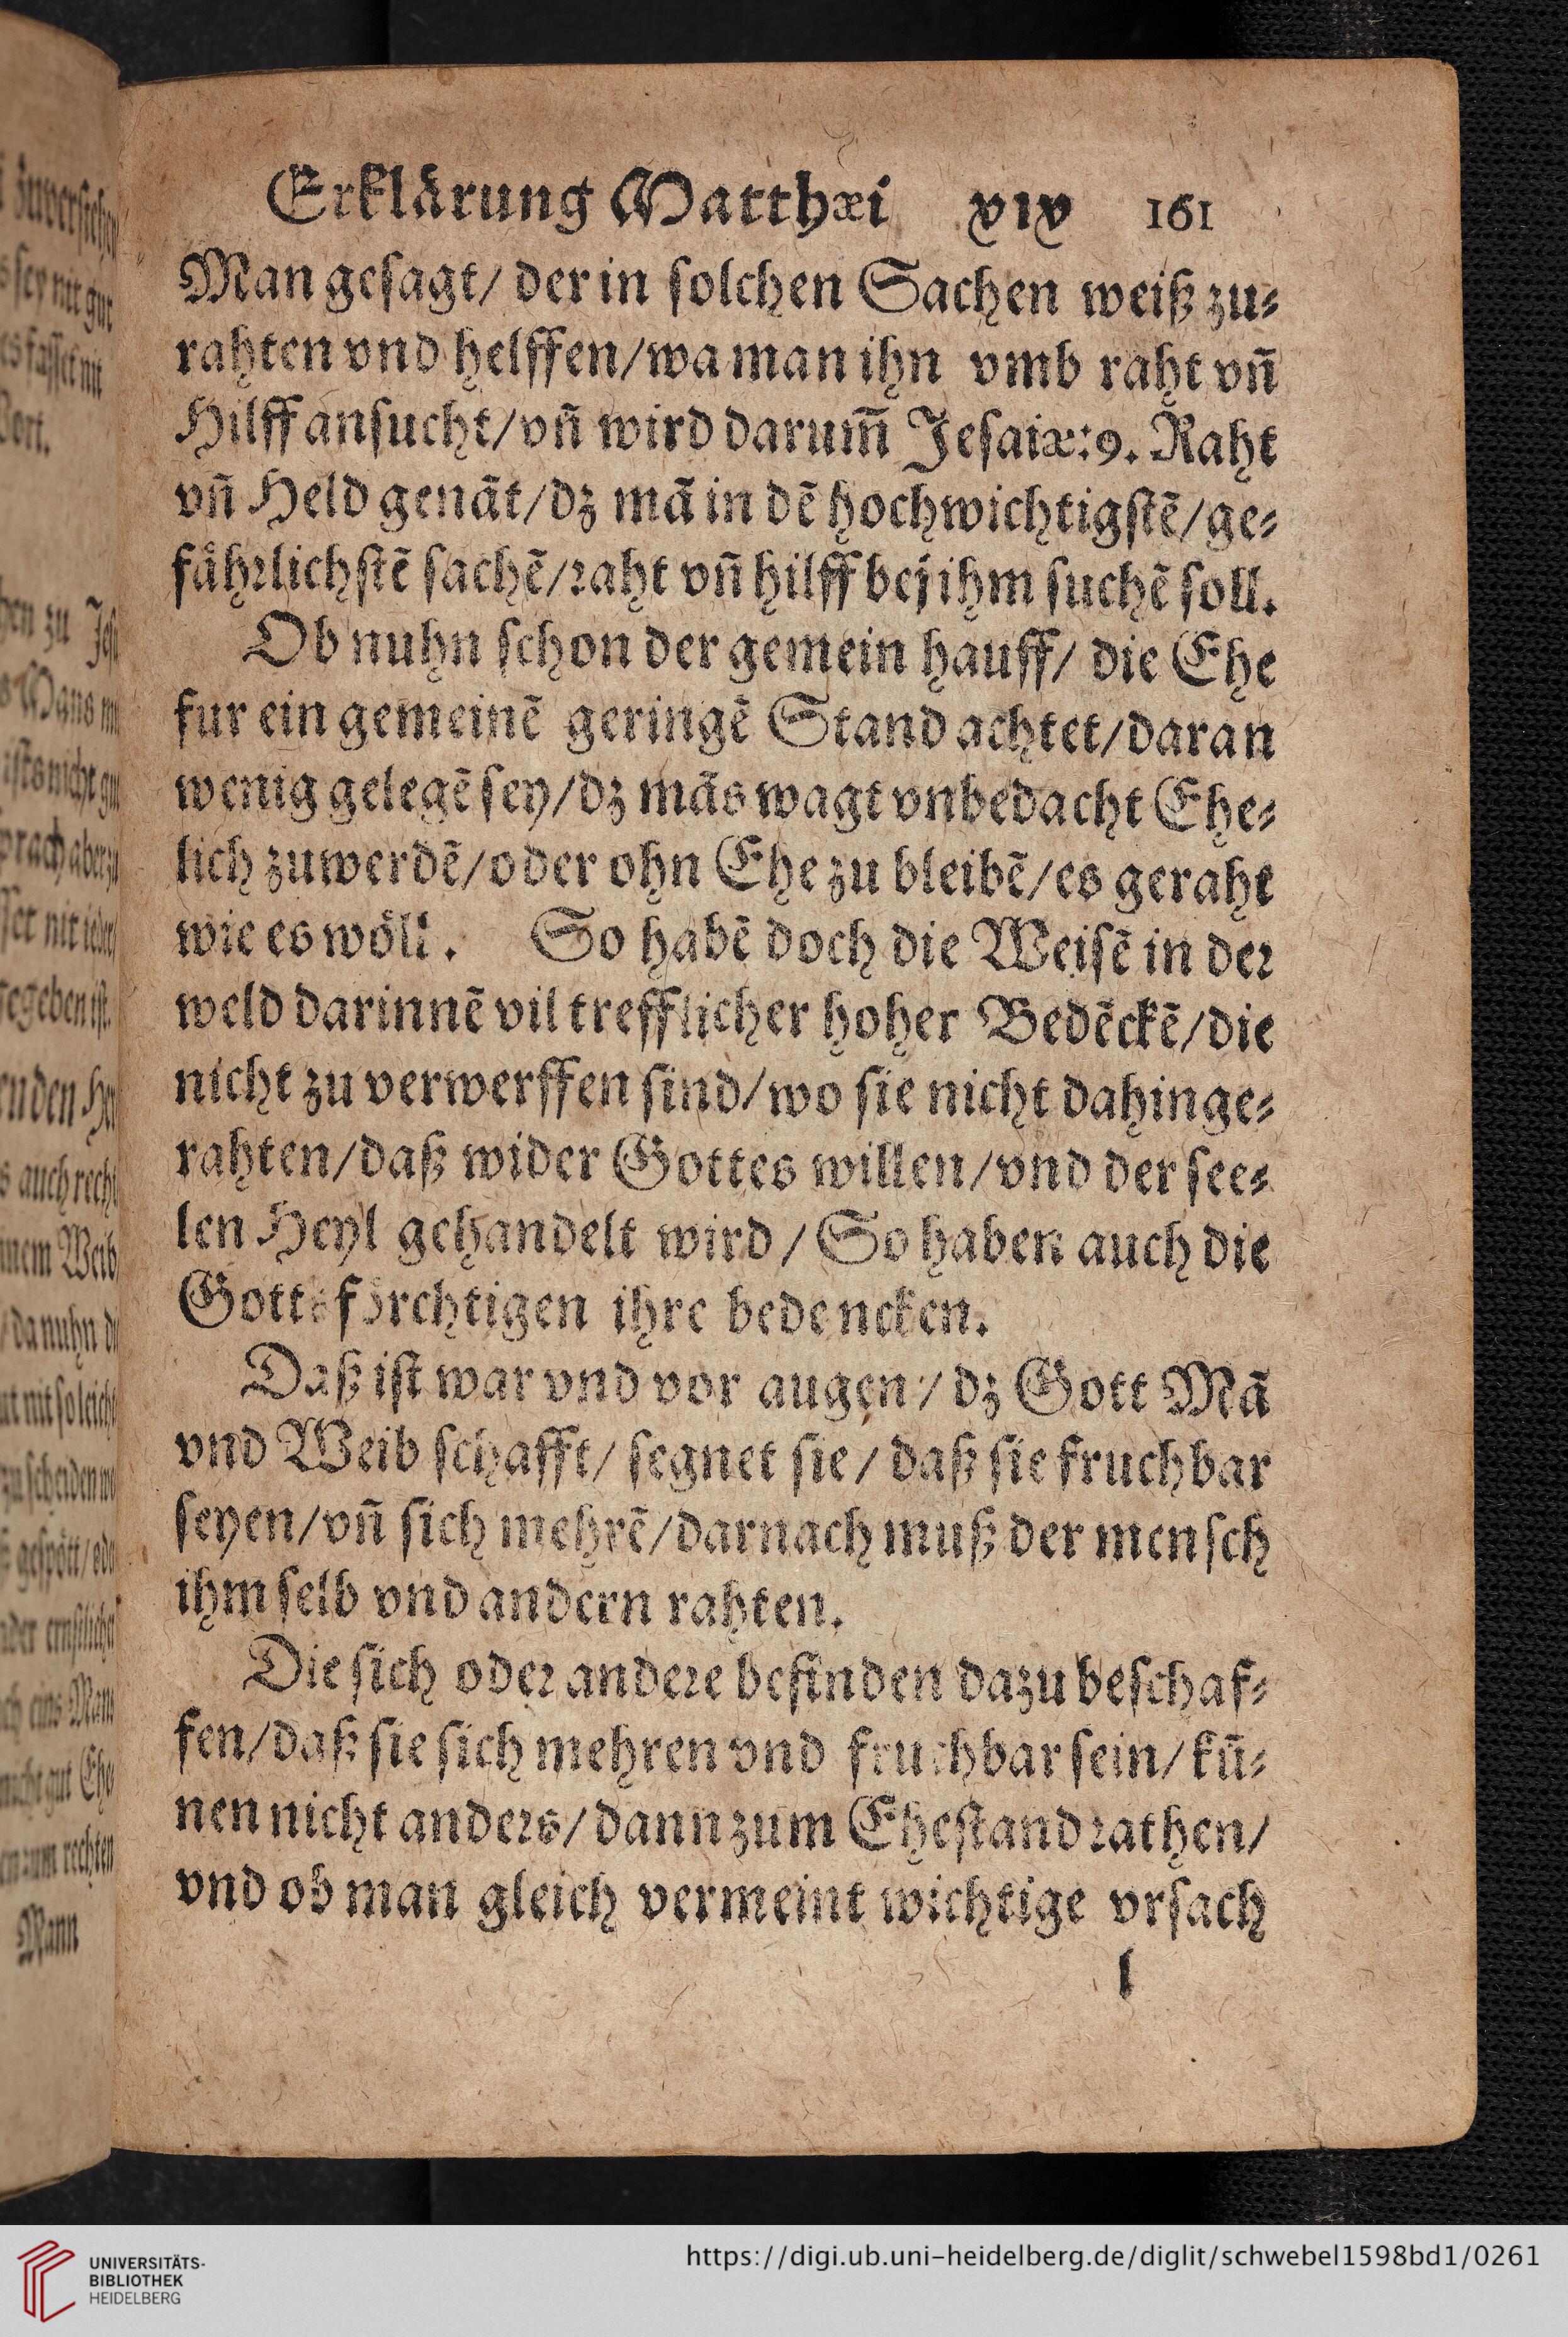 Erklärung Matthæi xix 161
Man gesagt/ der in solchen Sachen weiß zu⸗
rahten vnd helffen/wa man ihn vmb raht vñ
Hilff ansucht/vñ wird darum̃ Jesaiæ:9. Raht
vñ Held genãt/dz mã in dẽ hochwichtigstẽ/ge⸗
fährlichstẽ sachẽ/raht vñ hilff bej ihm suchẽ soll.
Ob nuhn schon der gemein hauff/ die Ehe
fur ein gemeinẽ geringẽ Stand achtet/daran
wenig gelegẽ sey/dz mãs wagt vnbedacht Ehe⸗
lich zuwerdẽ/oder ohn Ehe zu bleibẽ/es geraht
wie es wöll. So habẽ doch die Weisẽ in der
weld darinnẽ vil trefflicher hoher Bedẽckẽ/die
nicht zu verwerffen sind/wo sie nicht dahinge⸗
rahten/daß wider Gottes willen/vnd der see⸗
len Heyl gehandelt wird/ So haben auch die
Gottsförchtigen ihre bedencken.
Daß ist war vnd vor augen/ dz Gott Mã
vnd Weib schafft/ segnet sie/ daß sie fruchbar
seyen/vñ sich mehrẽ/darnach muß der mensch
ihm selb vnd andern rahten.
Die sich oder andere befinden dazu beschaf⸗
fen/daß sie sich mehren vnd fruchbar sein/kũ⸗
nen nicht anders/dann zum Ehestand rathen/
vnd ob man gleich vermeint wichtige vrsach
l
Mann
UNIVERSITÄTS-
BIBLIOTHEK
HEIDELBERG
https://digi.ub.uni-heidelberg.de/diglit/schwebel1598bd1/0261